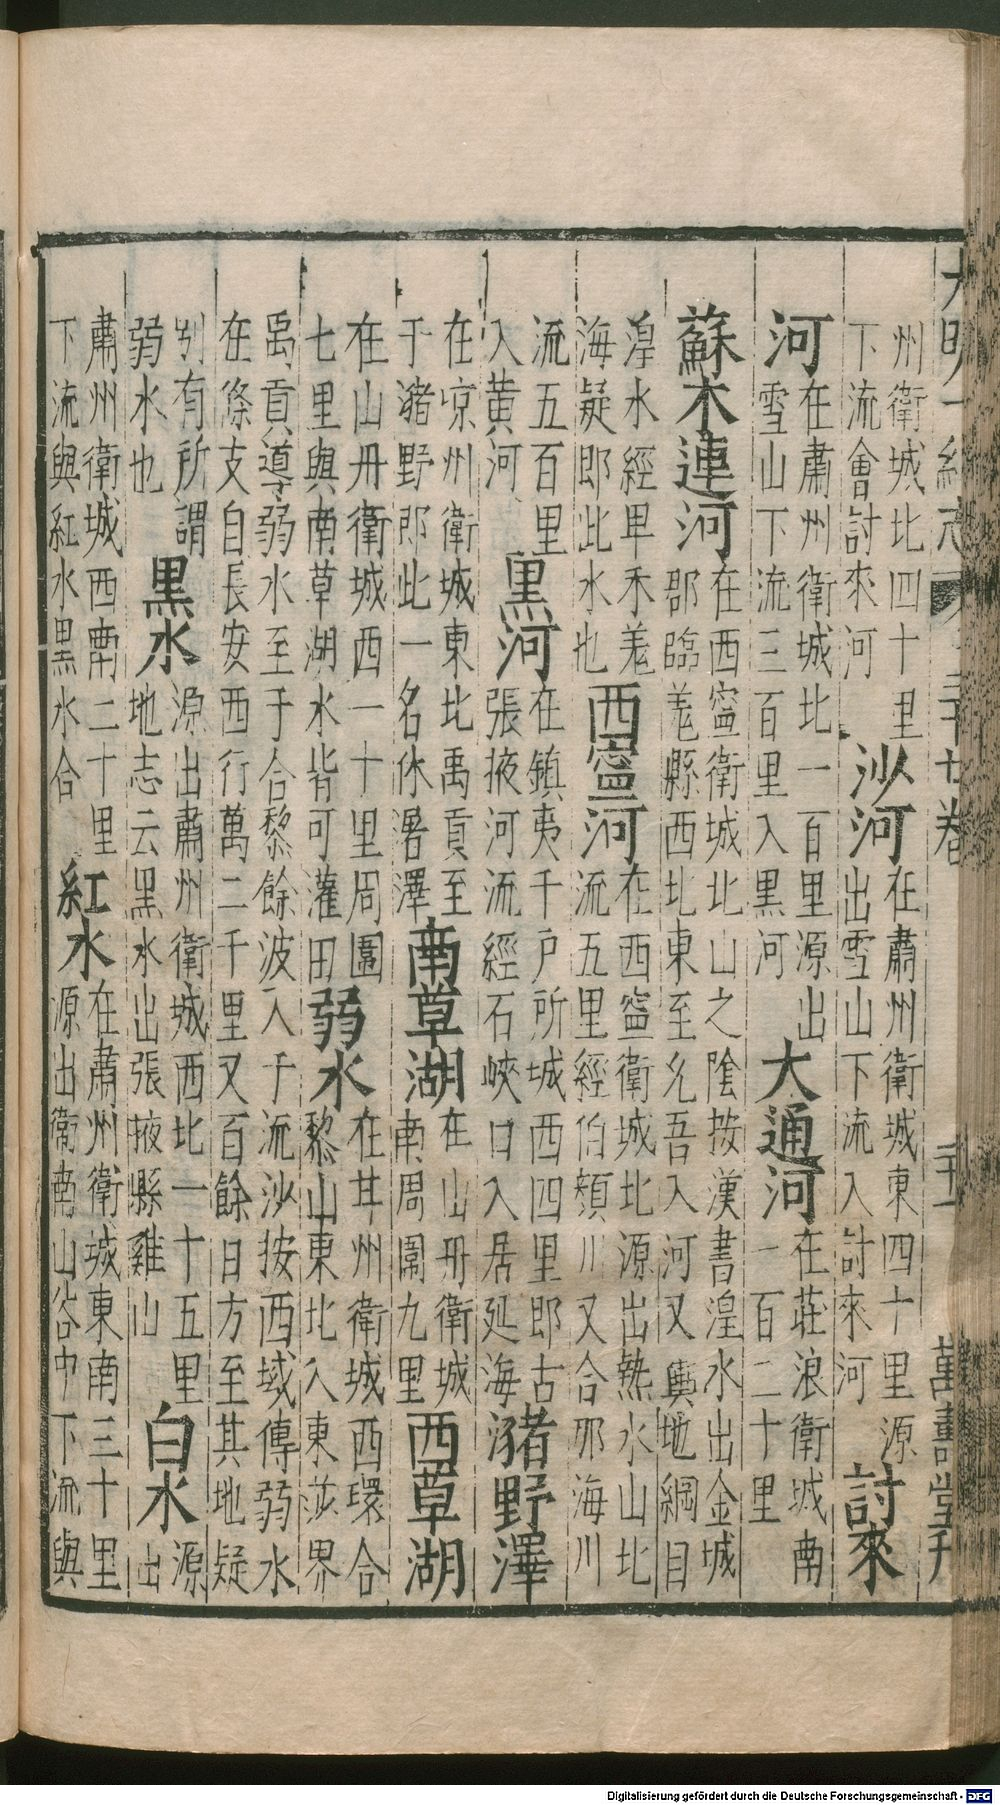 大明一統志 三十七卷 萬壽堂刊
州衛城北四十里
下流會討來河
沙河
在肅州衛城東四十里源
出雪山下流入討來河
討來
河
在肅州衛城北一百里源出
雪山下流三百里入黑河
大通河
在莊浪衛城南
一百二十里
蘇木連河
在西寧衛城北山之陰按漢書湟水出金城
郡臨羌縣西北東至允吾入河又輿地綱目
湟水經卑禾羌
海疑即此水也
西寧河
在西寧衛城北源出熱水山北
流五里經伯顏川又合那海川
流五百里
入黃河
黑河
在鎮夷千戶所城西四里即古
張掖河流經石峽口入居延海
豬野澤
在凉州衛城東北禹貢至
于豬野即此一名休屠澤
南草湖
在山丹衛城
南周圍九里
西草湖
在山丹衛城西一十里周圍
七里與南草湖水皆可灌田
弱水
在甘州衛城西環合
黎山東北入東莎界
禹貢導弱水至于合黎餘波入于流沙按西域傳弱水
在條支自長安西行萬二千里又百餘日方至其地疑
別有所謂
弱水也
黑水
源出肅州衛城西北一十五里
地志云黑水出張掖縣雞山
白水
源
出
肅州衛城西南二十里
下流與紅水黑水合
紅水
在肅州衛城東南三十里
源出衛南山谷中下流與
Digitalisierung gefördert durch die Deutsche Forschungsgemeinschaft - DFG